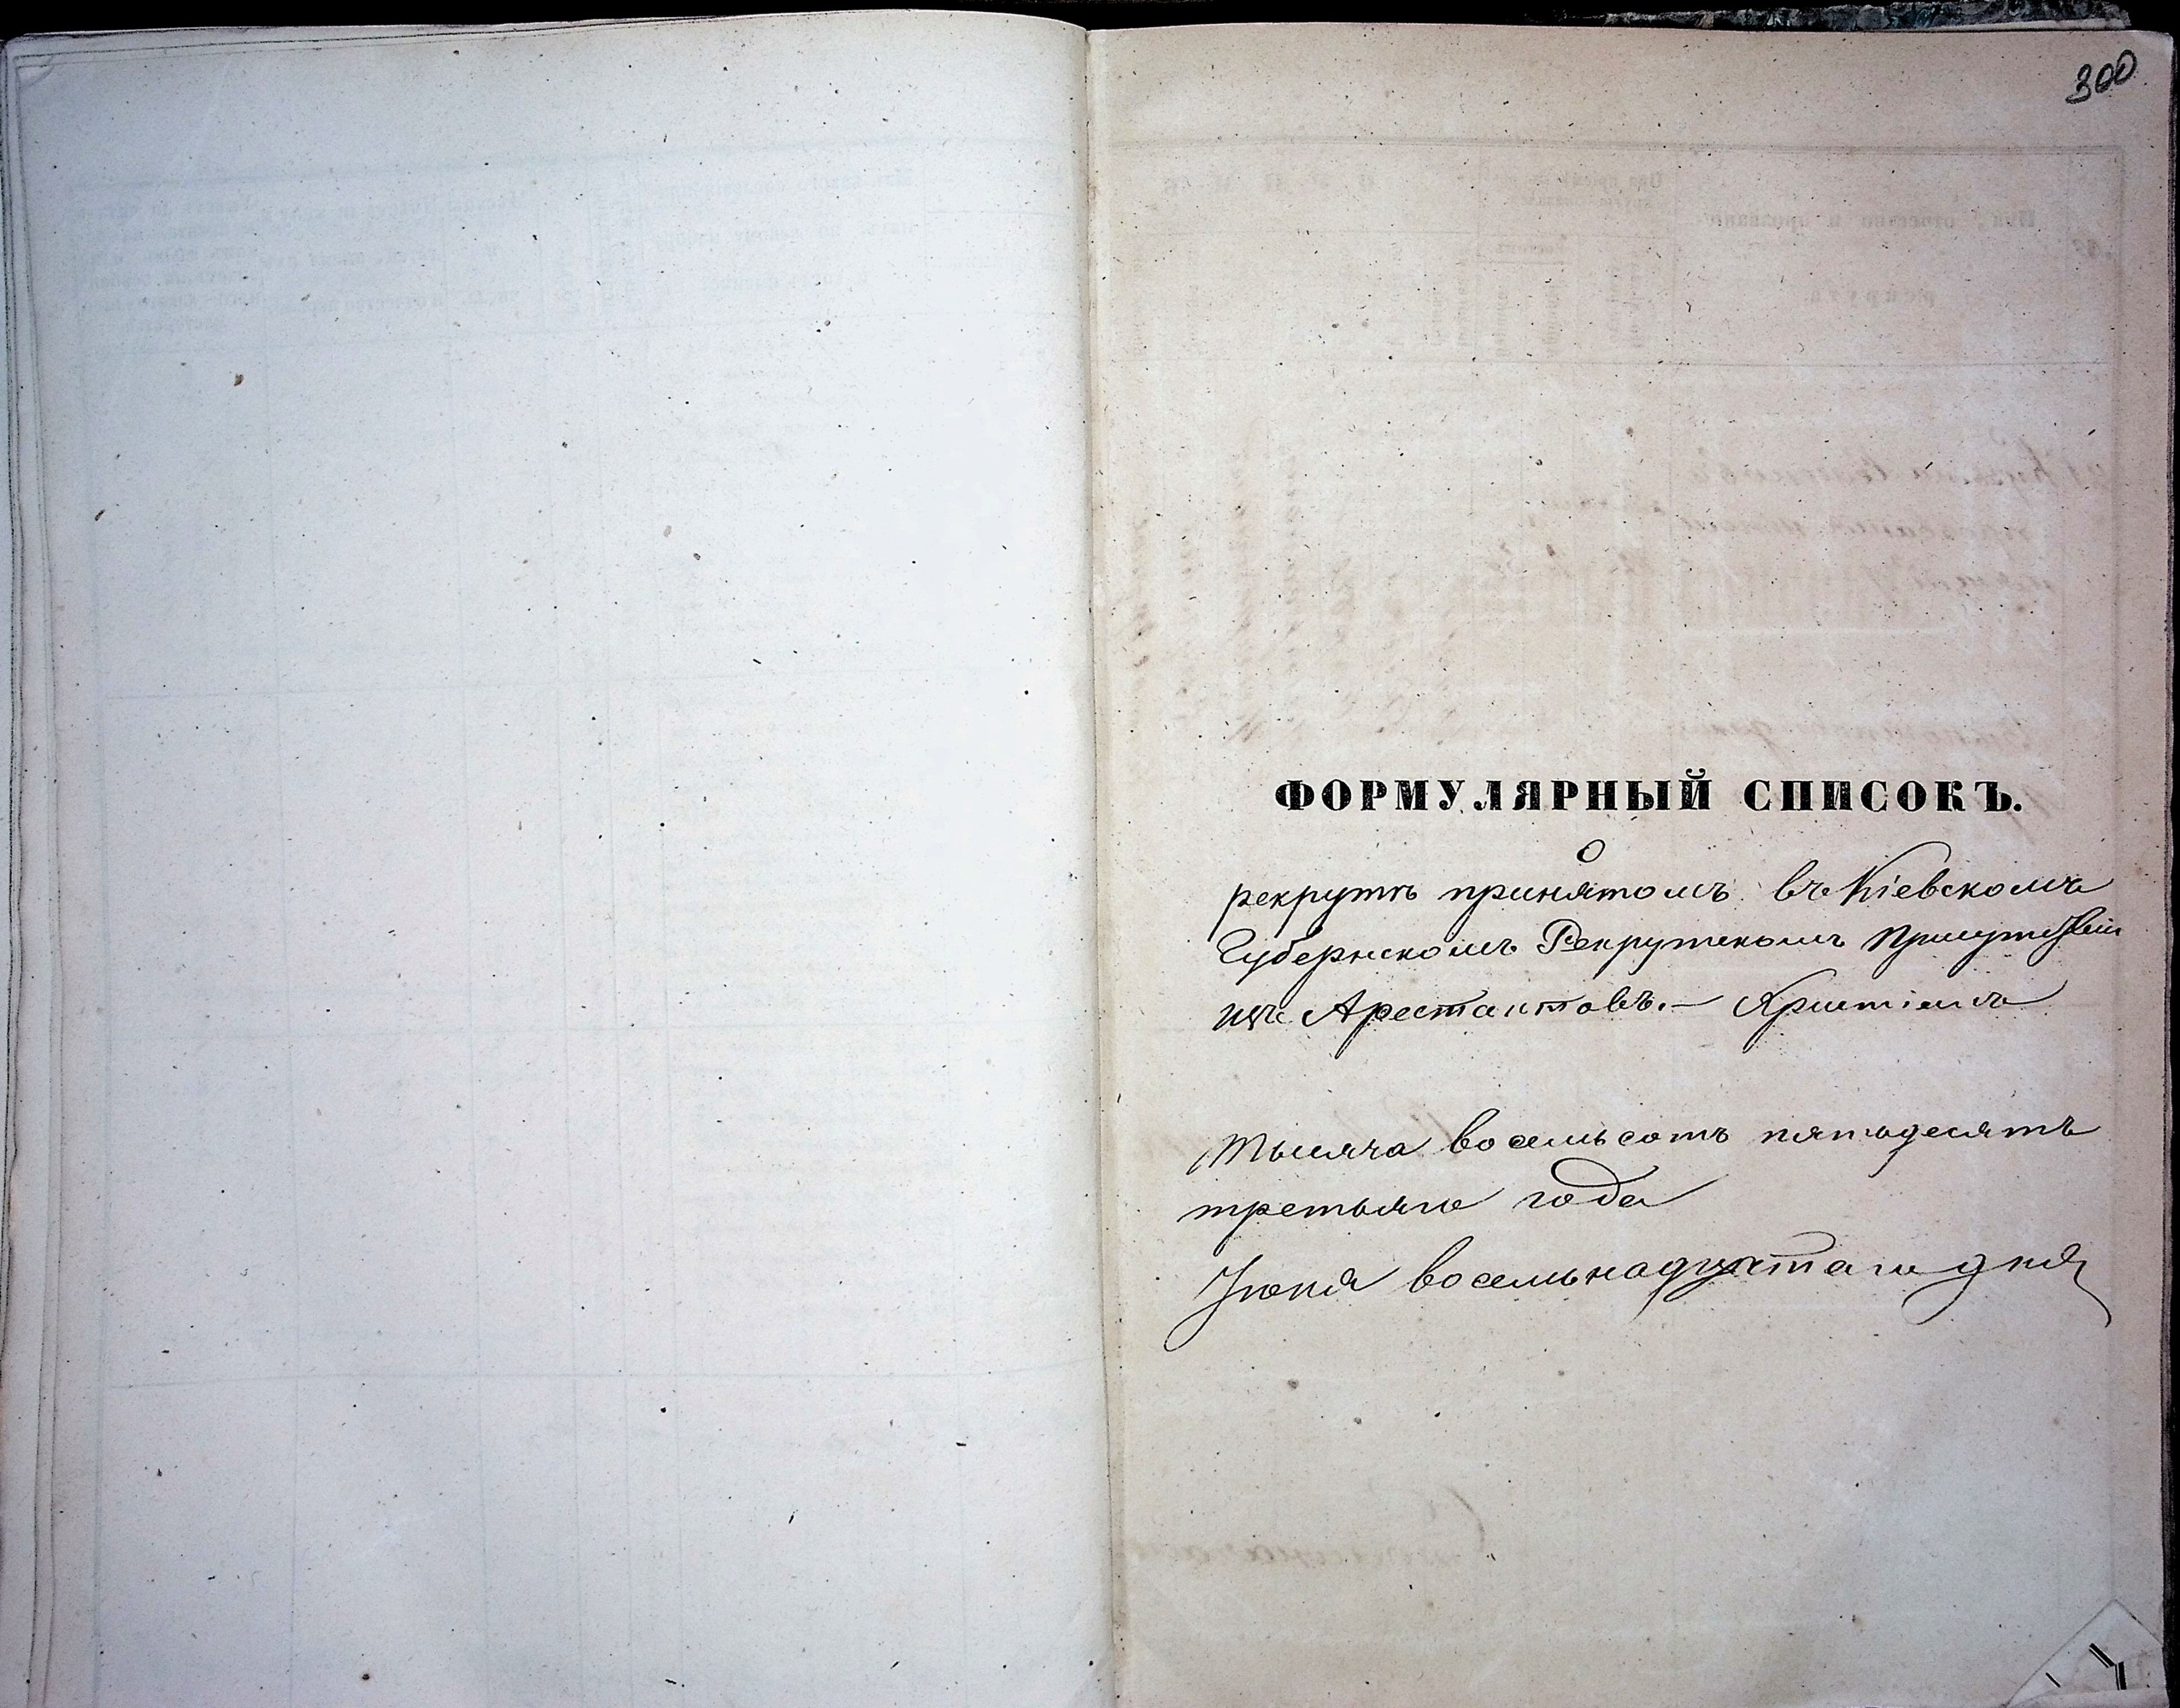 300
ФОРМУЛЯРНЫЙ СПИСОКЪ.
О
рекрутѣ принятомъ въ Кіевскомъ
Губернскомъ Рекрутскомъ Присутствіи
изъ Арестантовъ. —
Тысяча восемьсотъ пятьдесятъ
третьяго года
Іюня восемьнадцатаго дня